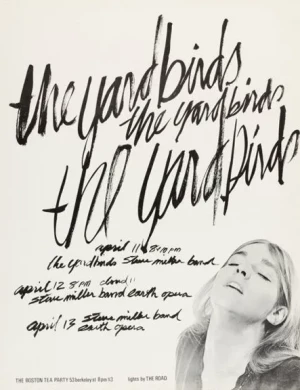 the yardbirds
the yardbirds
the yardbirds
april 11 8pm
the yardbirds steve miller band
april 12 8pm
steve miller band earth opera
april 13 steve miller band
earth opera
THE BOSTON TEA PARTY 53 berkeley st 8pm $3 lights by THE ROAD